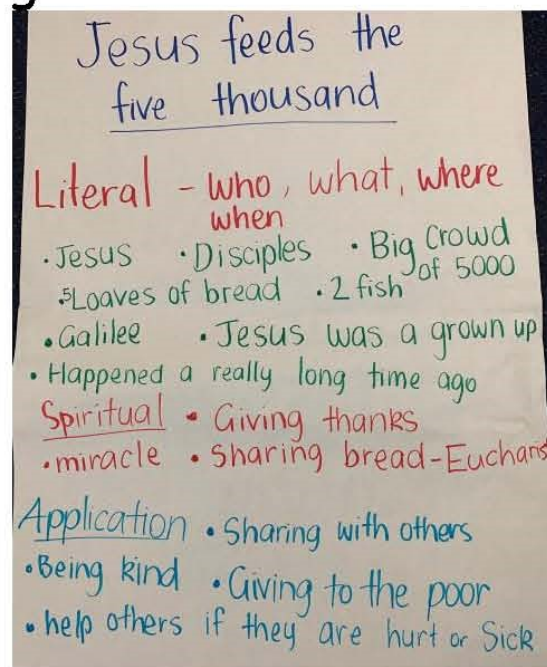 Jesus feeds the
five thousand
Literal - who, what, where
when
• Jesus • Disciples • Big Crowd
of 5000
• 5 Loaves of bread • 2 fish
• Galilee • Jesus was a grown up
• Happened a really long time ago
Spiritual • Giving thanks
• miracle • Sharing bread - Eucharis
Application • Sharing with others
• Being kind • Giving to the poor
• help others if they are hurt or Sick